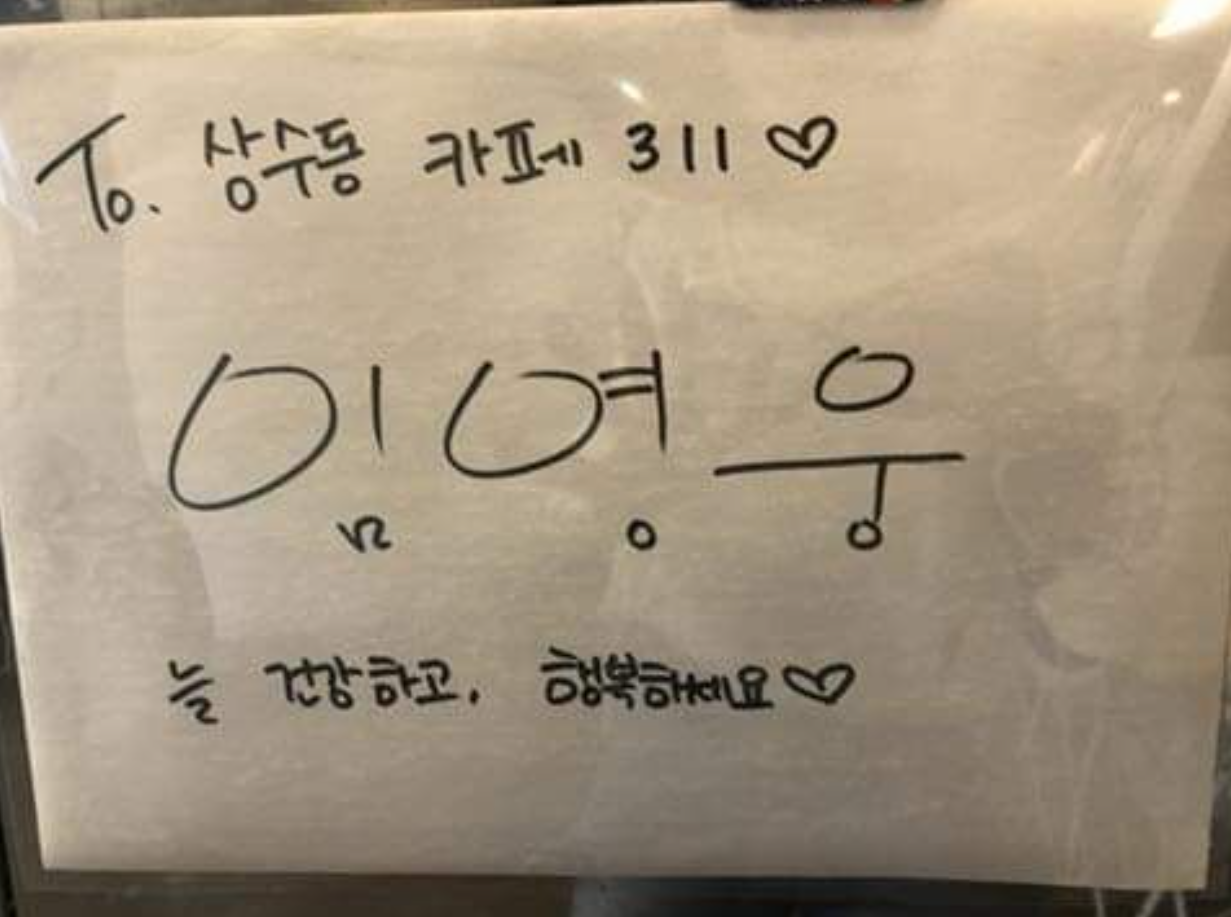 To. 상수동 카페 311 ♡
임영웅
늘 건강하고, 행복하세요♡